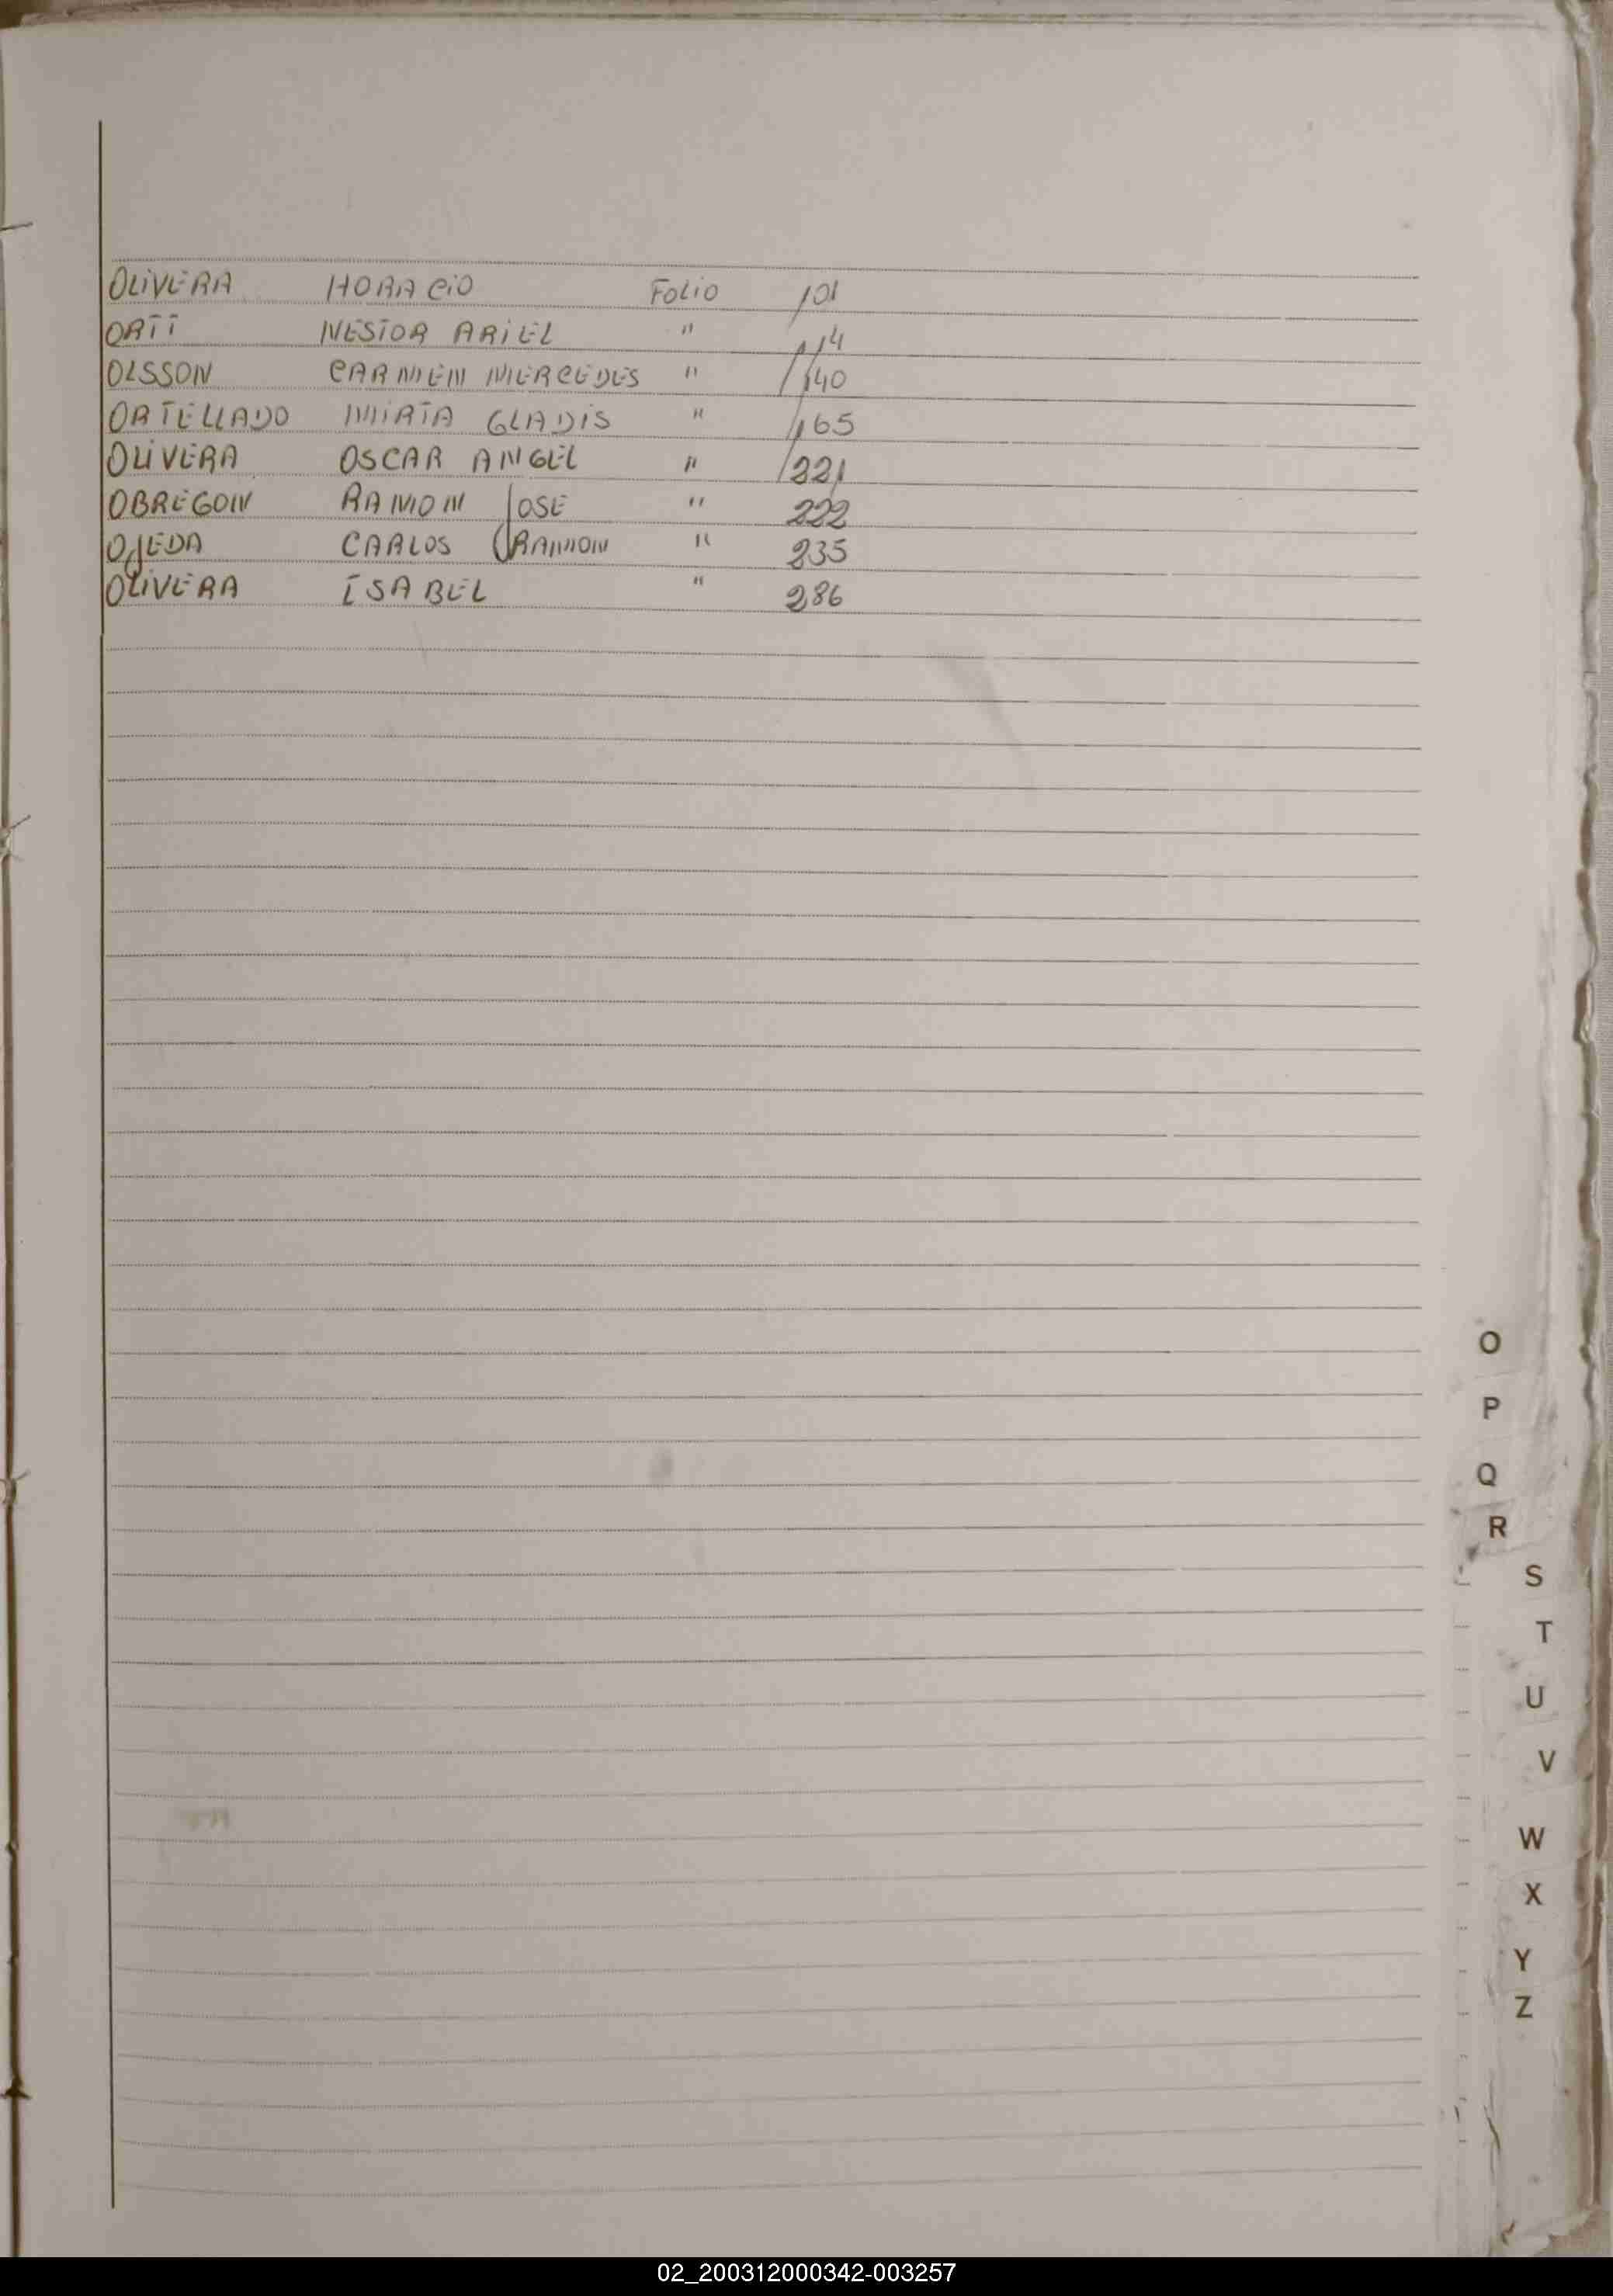 OLIVERA HORACIO FOLIO 101
ORTI NESTOR ARIEL " 114
OLSSON CARMEN MERCEDES " 140
ORTELLADO MIRTA GLADIS " 165
OLIVERA OSCAR ANGEL " 221
OBREGON RAMON JOSE " 222
OJEDA CARLOS RAMON " 235
OLIVERA ISABEL " 286
O
P
Q
R
S
T
U
V
W
X
Y
Z
02_200312000342-003257